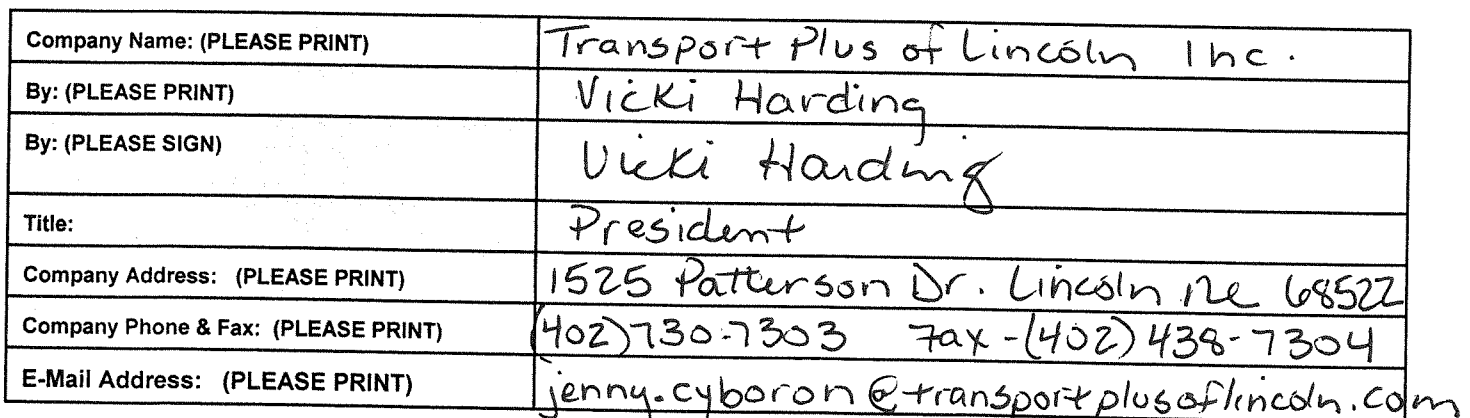 Company Name: (PLEASE PRINT) Transport Plus of Lincoln Inc.
By: (PLEASE PRINT) Vicki Harding
By: (PLEASE SIGN) Vicki Harding
Title: President
Company Address: (PLEASE PRINT) 1525 Patterson Dr. Lincoln Ne 68522
Company Phone & Fax: (PLEASE PRINT) (402)730-7303 Fax-(402)438-7304
E-Mail Address: (PLEASE PRINT) jenny.cyboron@transportplusoflincoln.com